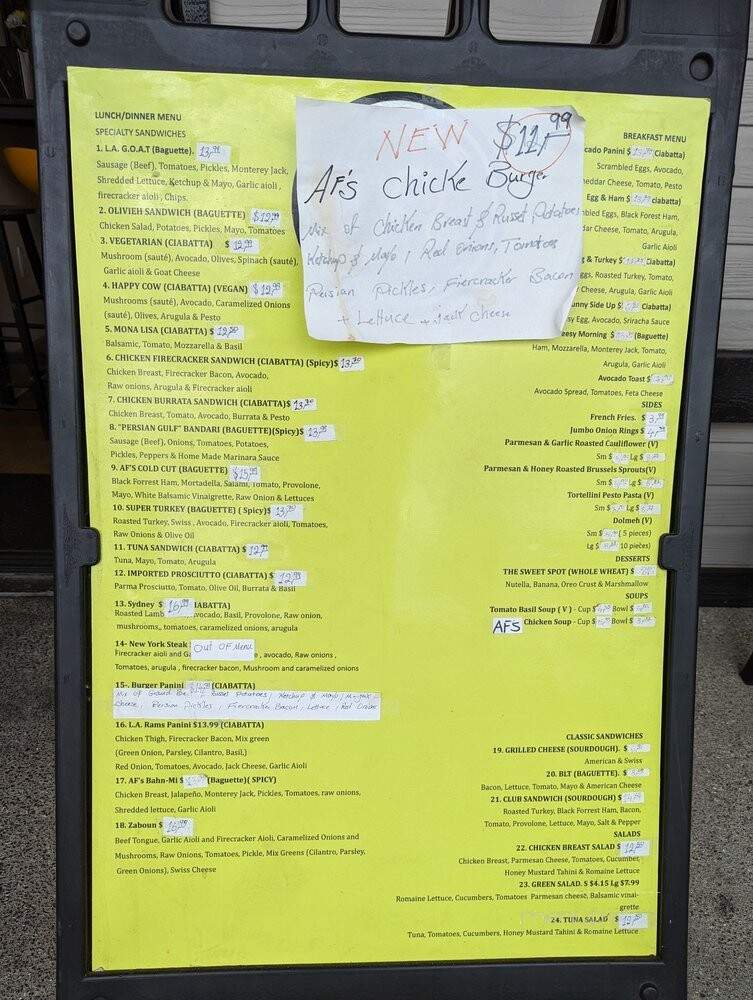 LUNCH/DINNER MENU
SPECIALTY SANDWICHES
1. L.A. G.O.A.T (Baguette).
Sausage (Beef), Tomatoes, Pickles, Monterey Jack,
Shredded Lettuce, Ketchup & Mayo, Garlic aioli,
firecracker aioli, Chips.
2. OLIVIEH SANDWICH (BAGUETTE) $12.99
Chicken Salad, Potatoes, Pickles, Mayo, Tomatoes
3. VEGETARIAN (CIABATTA) $
Mushroom (sauté), Avocado, Olives, Spinach (sauté),
Garlic aioli & Goat Cheese
4. HAPPY COW (CIABATTA) (VEGAN) $12.99
Mushrooms (sauté), Avocado, Caramelized Onions
(sauté), Olives, Arugula & Pesto
5. MONA LISA (CIABATTA) $
Balsamic, Tomato, Mozzarella & Basil
6. CHICKEN FIRECRACKER SANDWICH (CIABATTA) (Spicy)$
Chicken Breast, Firecracker Bacon, Avocado,
Raw onions, Arugula & Firecracker aioli
7. CHICKEN BURRATA SANDWICH (CIABATTA)$
Chicken Breast, Tomato, Avocado, Burrata & Pesto
8. "PERSIAN GULF" BANDARI (BAGUETTE)(Spicy)$
Sausage (Beef), Onions, Tomatoes, Potatoes,
Pickles, Peppers & Home Made Marinara Sauce
9. AF'S COLD CUT (BAGUETTE) $15.99
Black Forrest Ham, Mortadella, Salami, Tomato, Provolone,
Mayo, White Balsamic Vinaigrette, Raw Onion & Lettuces
10. SUPER TURKEY (BAGUETTE) ( Spicy)$
Roasted Turkey, Swiss, Avocado, Firecracker aioli, Tomatoes,
Raw Onions & Olive Oil
11. TUNA SANDWICH (CIABATTA) $
Tuna, Mayo, Tomato, Arugula
12. IMPORTED PROSCIUTTO (CIABATTA) $
Parma Prosciutto, Tomato, Olive Oil, Burrata & Basil
13. Sydney $ 16.99 IABATTA)
Roasted Lamb vocado, Basil, Provolone, Raw onion,
mushrooms,, tomatoes, caramelized onions, arugula
14- New York Steak OUT OF MENU
Firecracker aioli and Ga , avocado, Raw onions ,
Tomatoes, arugula , firecracker bacon, Mushroom and caramelized onions
15-. Burger Panini (CIABATTA)
Mix of Ground Russet Potatoes, Ketchup & Mayo,
Cheese, Persian Pickles, Firecracker Bacon, Lettuce, Red Onions
16. L.A. Rams Panini $13.99 (CIABATTA)
Chicken Thigh, Firecracker Bacon, Mix green
(Green Onion, Parsley, Cilantro, Basil,)
Red Onion, Tomatoes, Avocado, Jack Cheese, Garlic Aioli
17. AF's Bahn-Mi $ (Baguette)( SPICY)
Chicken Breast, Jalapeño, Monterey Jack, Pickles, Tomatoes, raw onions,
Shredded lettuce, Garlic Aioli
18. Zaboun $
Beef Tongue, Garlic Aioli and Firecracker Aioli, Caramelized Onions and
Mushrooms, Raw Onions, Tomatoes, Pickle, Mix Greens (Cilantro, Parsley,
Green Onions), Swiss Cheese
NEW $11.99
AF's Chicke Burger
Mix of Chicken Breast & Russet Potatoes
Ketchup & Mayo, Red Onions, Tomatoes
Persian Pickles, Fiercracker Bacon
+ Lettuce + Jack Cheese
BREAKFAST MENU
cado Panini $ Ciabatta)
Scrambled Eggs, Avocado,
eddar Cheese, Tomato, Pesto
Egg & Ham $ ciabatta)
bled Eggs, Black Forest Ham,
dar Cheese, Tomato, Arugula,
Garlic Aioli
g & Turkey $ Ciabatta)
ggs, Roasted Turkey, Tomato,
Cheese, Arugula, Garlic Aioli
unny Side Up $ Ciabatta)
sy Egg, Avocado, Sriracha Sauce
eesy Morning $ (Baguette)
Ham, Mozzarella, Monterey Jack, Tomato,
Arugula, Garlic Aioli
Avocado Toast $
Avocado Spread, Tomatoes, Feta Cheese
SIDES
French Fries. $
Jumbo Onion Rings $
Parmesan & Garlic Roasted Cauliflower (V)
Sm $ Lg $
Parmesan & Honey Roasted Brussels Sprouts(V)
Sm $ Lg $
Tortellini Pesto Pasta (V)
Sm $ Lg $
Dolmeh (V)
Sm $ ( 5 pieces)
Lg $ 10 pieces)
DESSERTS
THE SWEET SPOT (WHOLE WHEAT) $
Nutella, Banana, Oreo Crust & Marshmallow
SOUPS
Tomato Basil Soup ( V ) - Cup $ Bowl $
AFS Chicken Soup - Cup $ Bowl $
CLASSIC SANDWICHES
19. GRILLED CHEESE (SOURDOUGH). $
American & Swiss
20. BLT (BAGUETTE). $
Bacon, Lettuce, Tomato, Mayo & American Cheese
21. CLUB SANDWICH (SOURDOUGH) $
Roasted Turkey, Black Forrest Ham, Bacon,
Tomato, Provolone, Lettuce, Mayo, Salt & Pepper
SALADS
22. CHICKEN BREAST SALAD $
Chicken Breast, Parmesan Cheese, Tomatoes, Cucumber,
Honey Mustard Tahini & Romaine Lettuce
23. GREEN SALAD. S $4.15 Lg $7.99
Romaine Lettuce, Cucumbers, Tomatoes Parmesan cheese, Balsamic vinai-
grette
24. TUNA SALAD $
Tuna, Tomatoes, Cucumbers, Honey Mustard Tahini & Romaine Lettuce